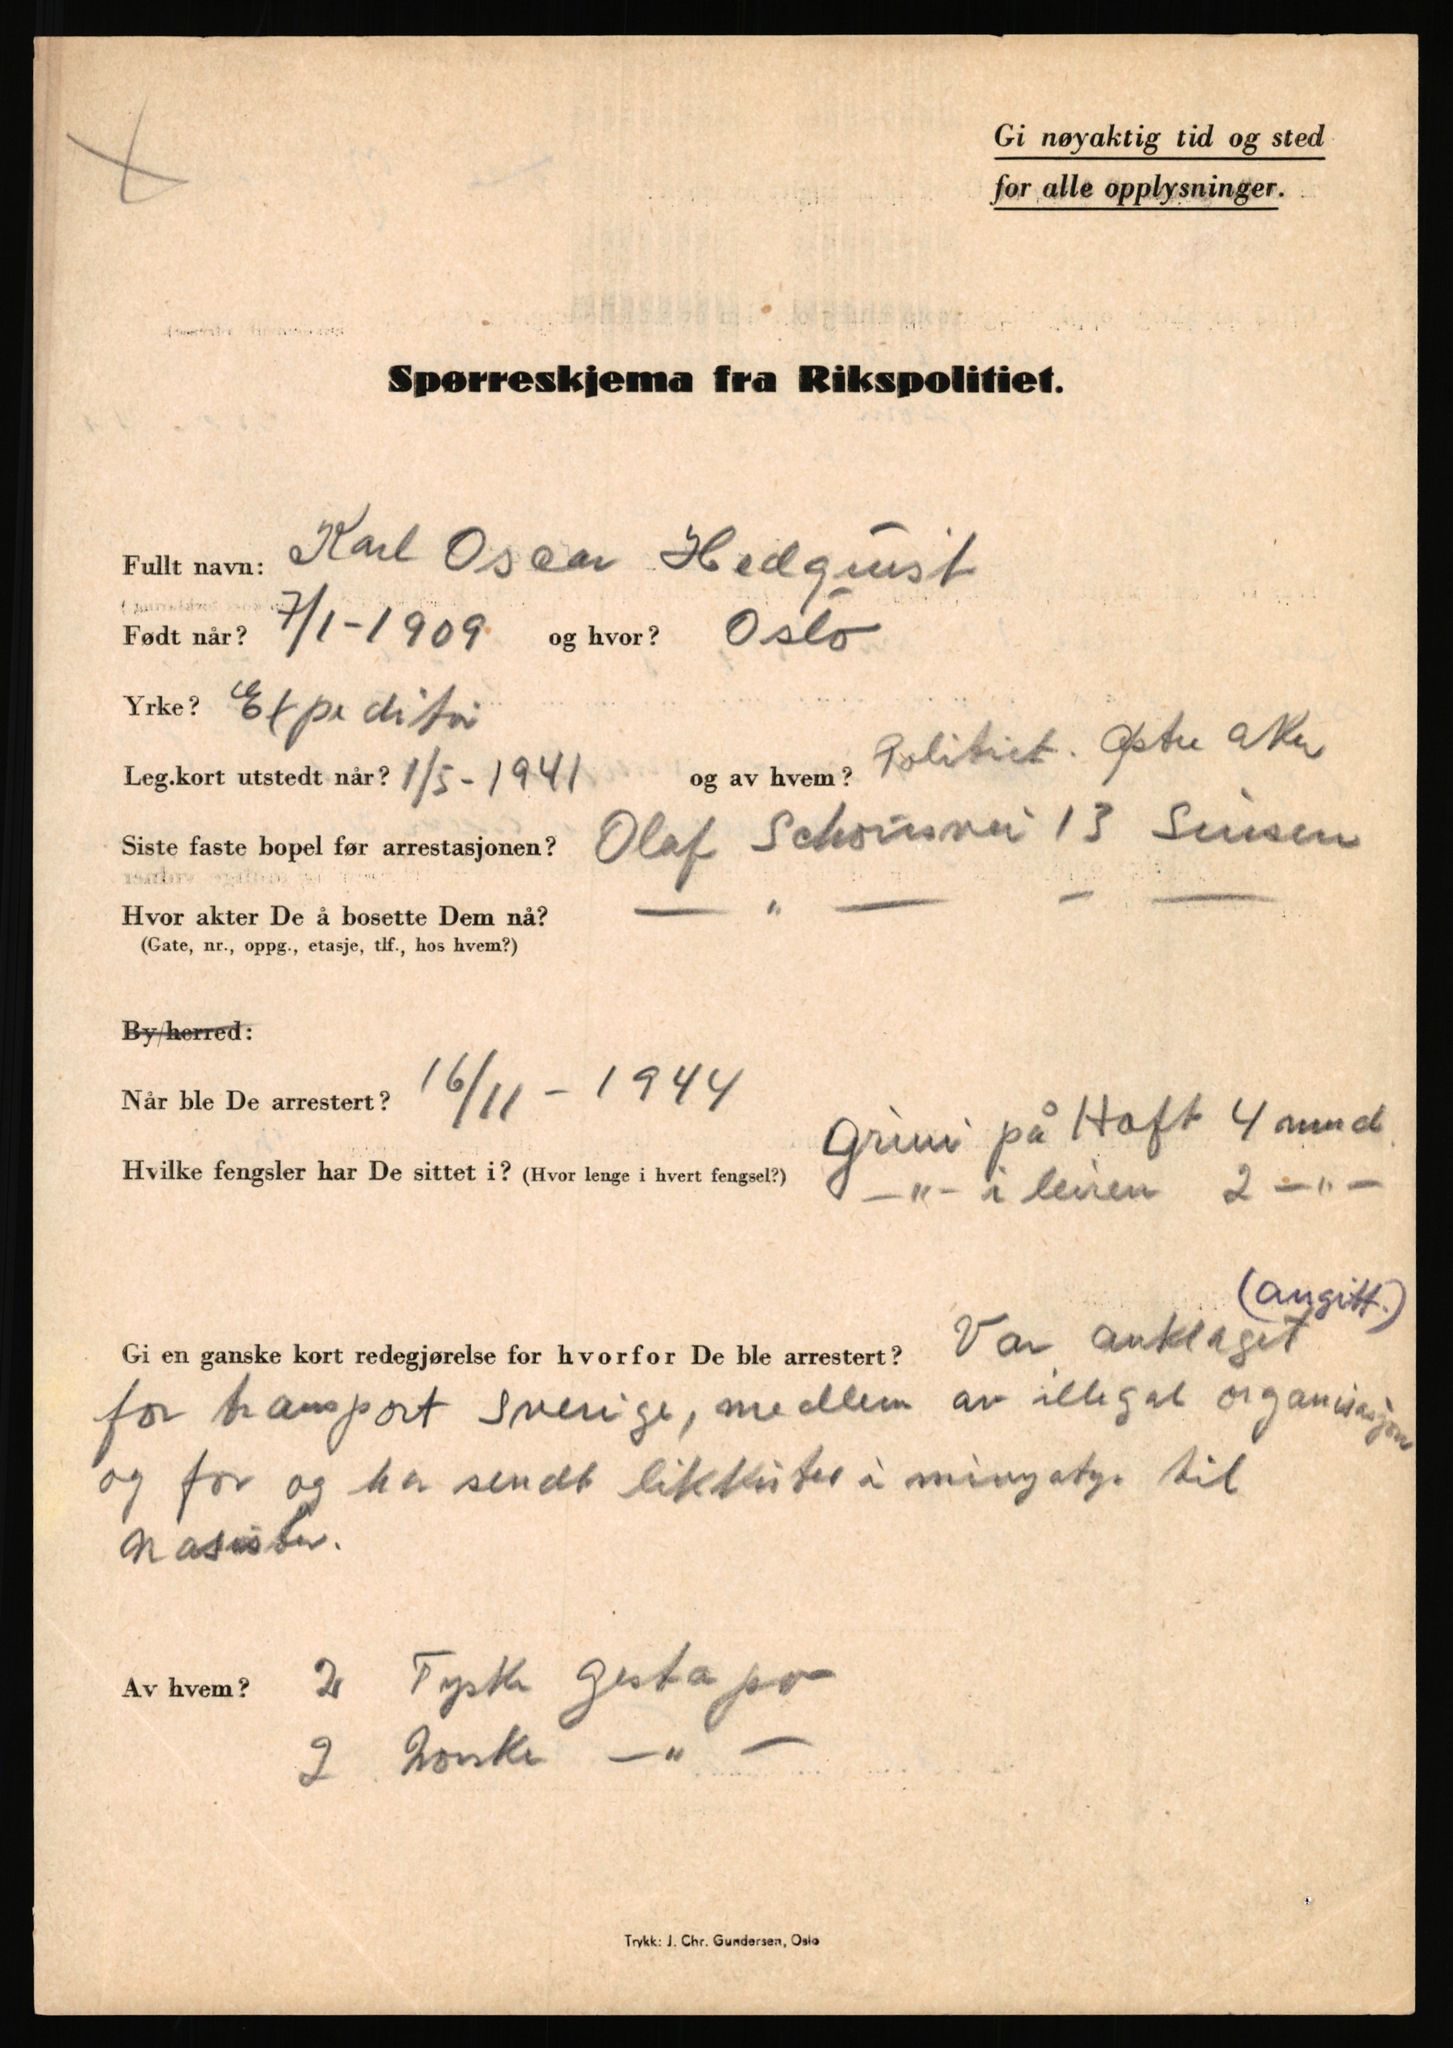 Gi nøyaktig tid og sted
for alle opplysninger.
Spørreskjema fra Rikspolitiet.
Fullt navn: Karl Oscar Hedquist
Født når? 7/1-1909 og hvor? Oslo
Yrke? Expeditør
Leg.kort utstedt når? 1/5-1941 og av hvem? Politiet. Østre Aker
Siste faste bopel før arrestasjonen? Olaf Schousvei 13 Sinsen
Hvor akter De å bosette Dem nå? — " — - —
(Gate, nr., oppg., etasje, tlf., hos hvem?)
By/herred:
Når ble De arrestert? 16/11-1944
Hvilke fengsler har De sittet i? (Hvor lenge i hvert fengsel?) Grini på Haft 4 mnd.
—"— i leiren 2 —"—
(angitt.)
Gi en ganske kort redegjørelse for hvorfor De ble arrestert? Var anklaget
for transport Sverige, medlem av illegal organisasjon
og for og ha sendt likkister i minyatyr til
nasister.
Av hvem? 2 Tyske Gestapo
2 Norske —"—
Trykk: J. Chr. Gundersen, Oslo